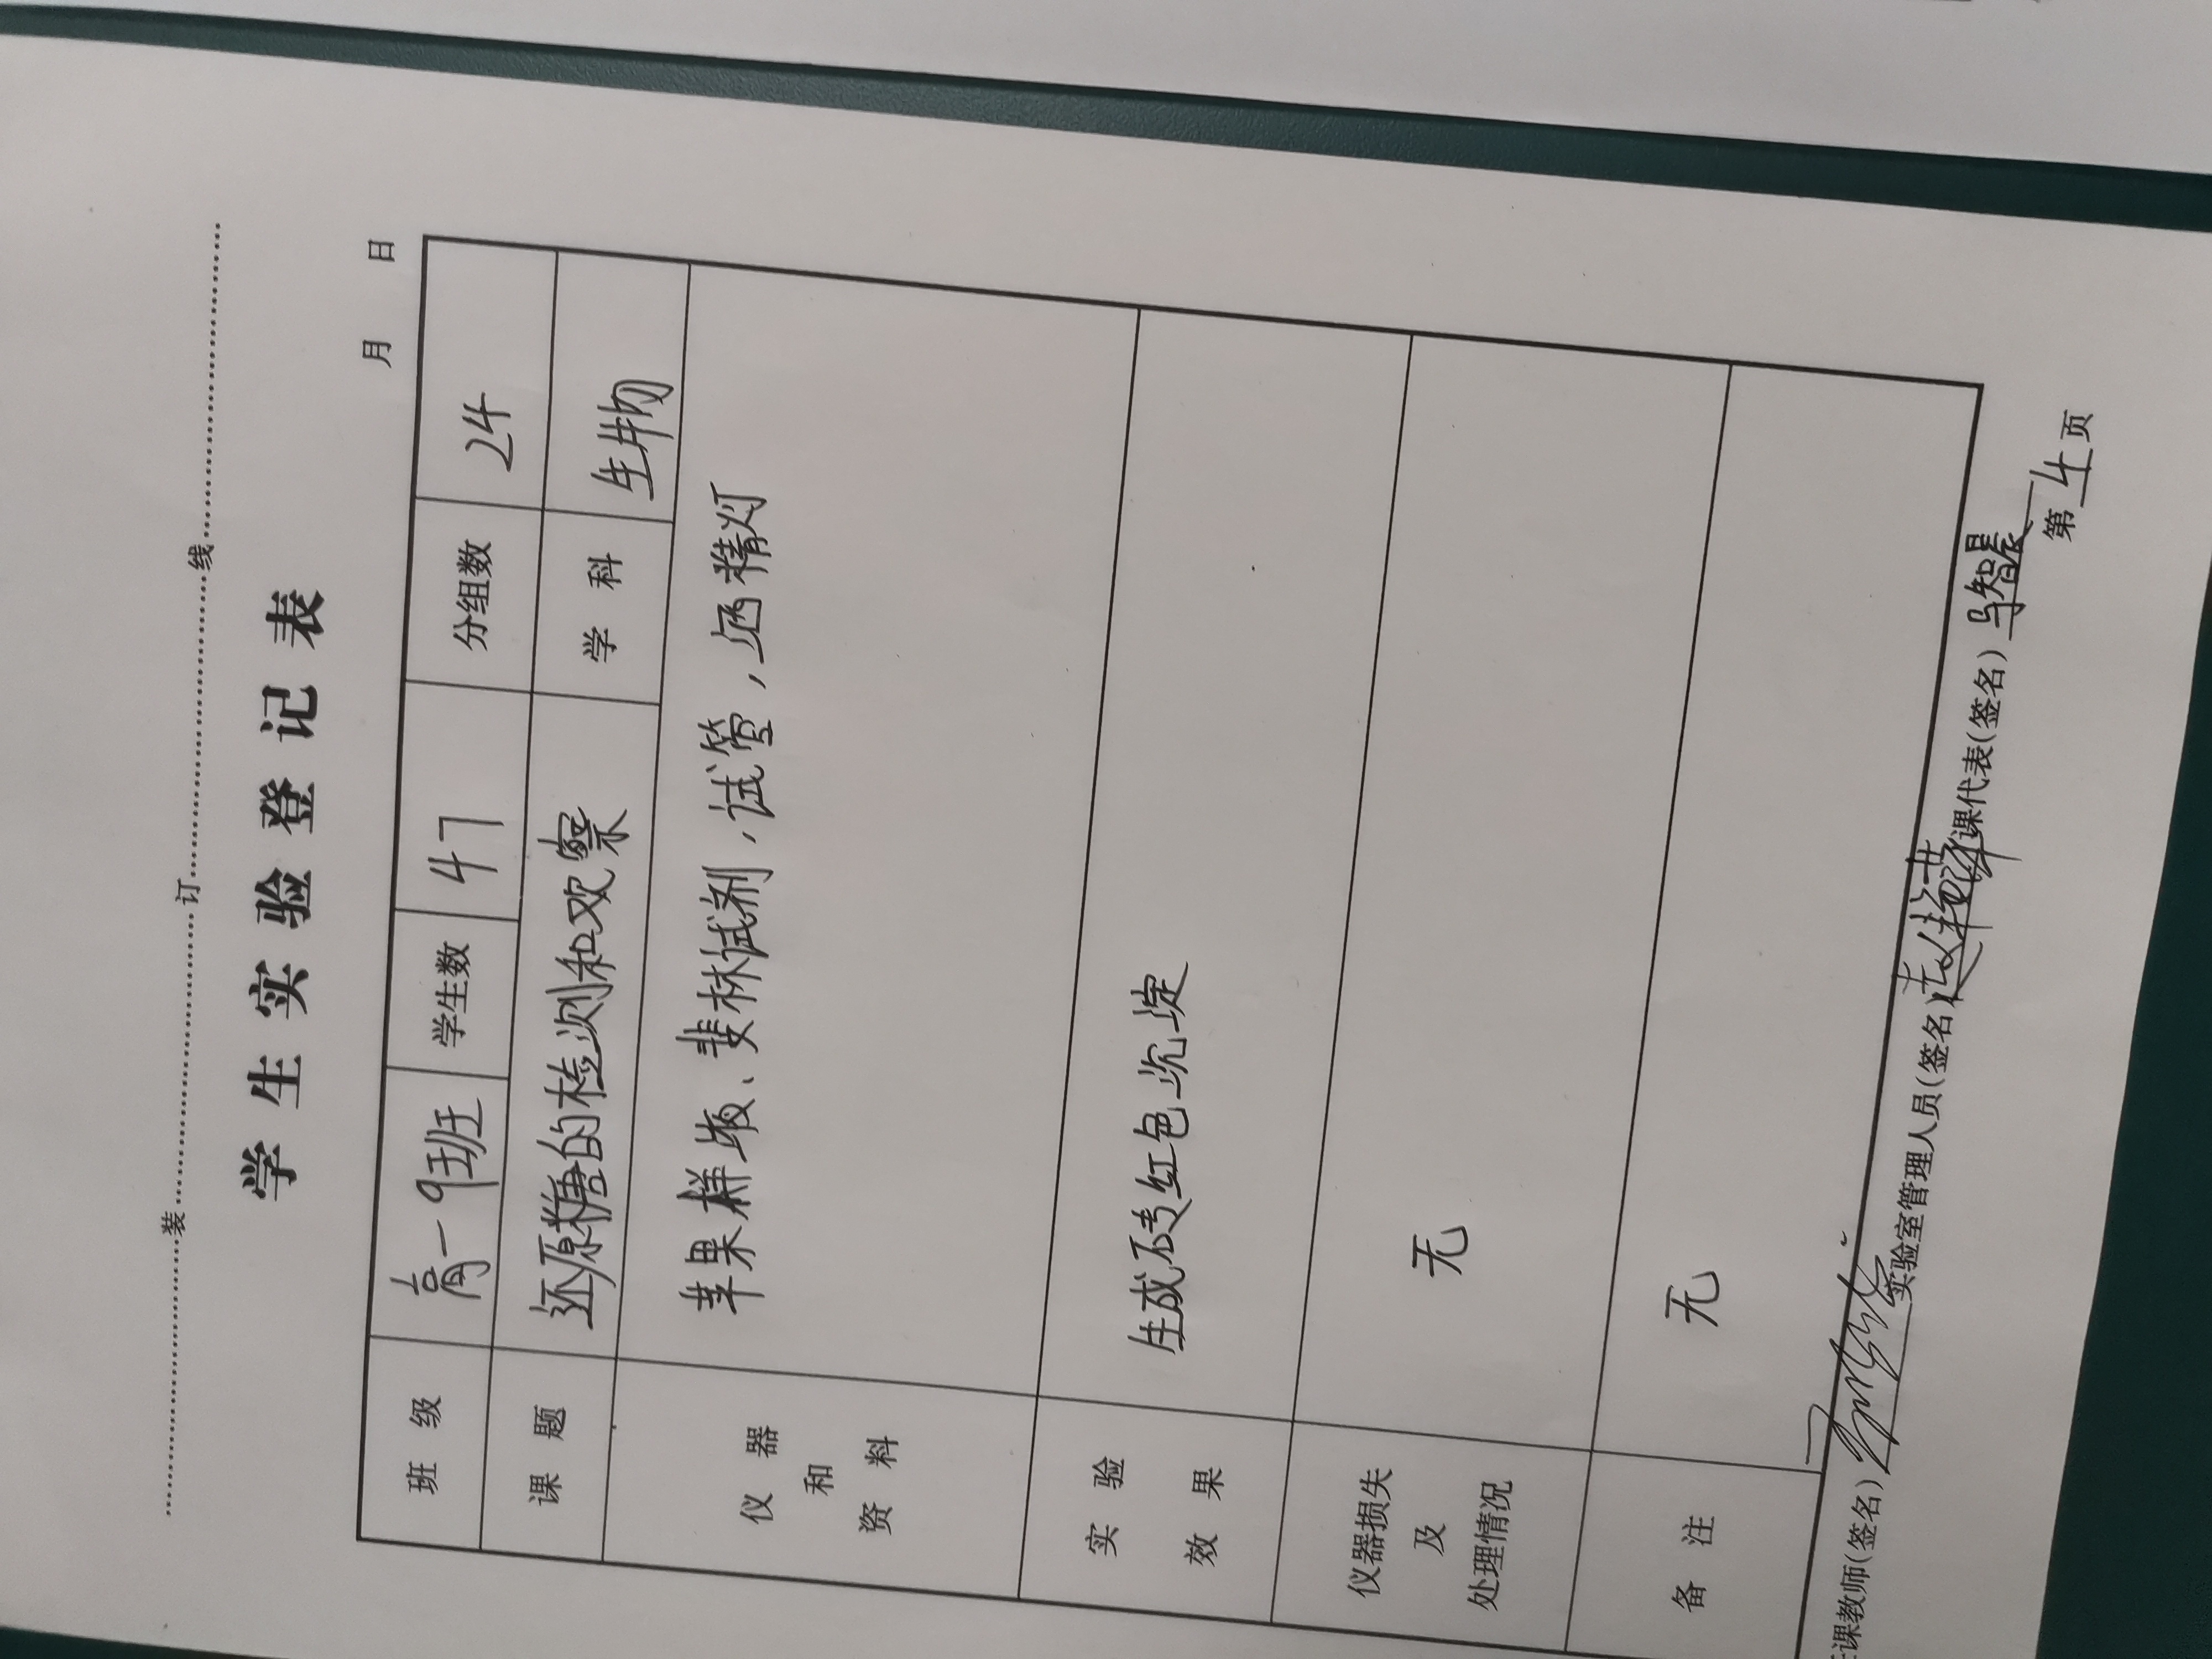 装 订 线
学生实验登记表
月 日
班级 高一9班 学生数 47 分组数 24
课题 还原糖的检测和观察 学科 生物
仪器和资料 苹果样液、斐林试剂,试管,酒精灯
实验效果 生成砖红色沉淀
仪器损失及处理情况 无
备注 无
课教师(签名) 实验室管理人员(签名) 课代表(签名)
第4页